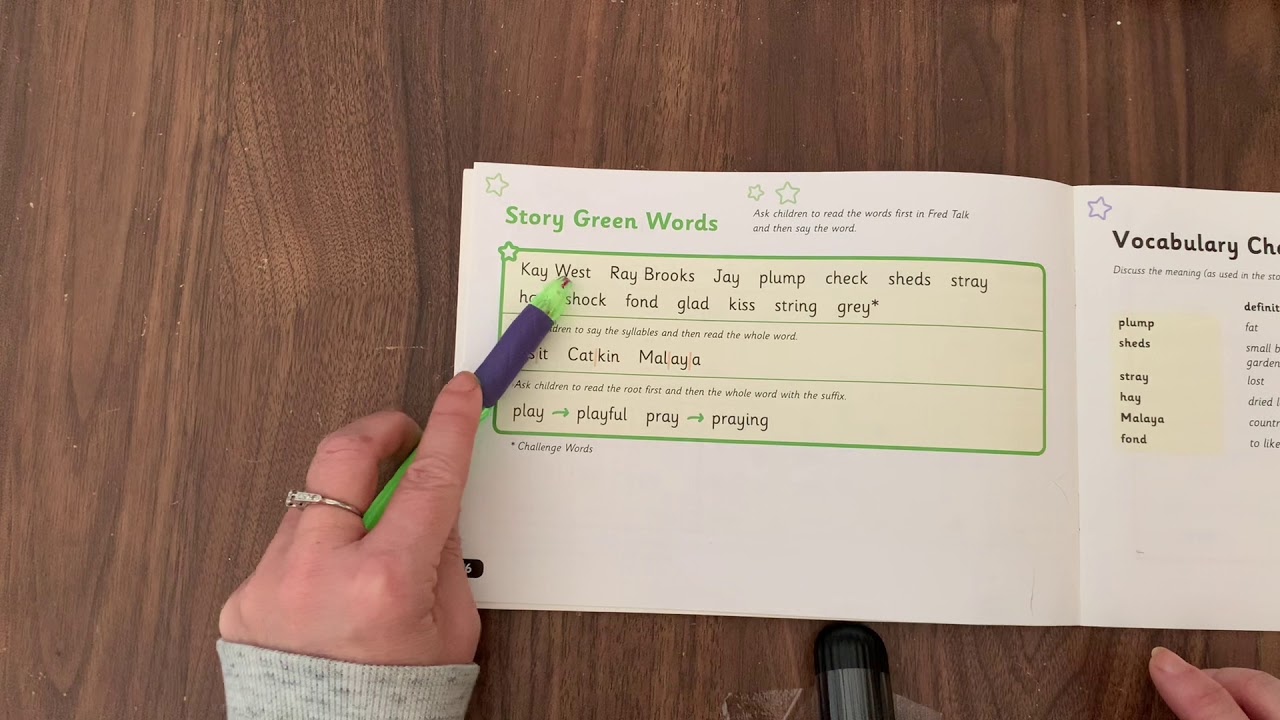 Story Green Words
Ask children to read the words first in Fred Talk
and then say the word.
Kay West Ray Brooks Jay plump check sheds stray
shock fond glad kiss string grey*
to say the syllables and then read the whole word.
Cat|kin Mal|ay|a
Ask children to read the root first and then the whole word with the suffix.
play → playful pray → praying
* Challenge Words
6
Vocabulary
Discuss the meaning (as used in the
plump fat
sheds small
stray lost
hay dried
Malaya
fond to like